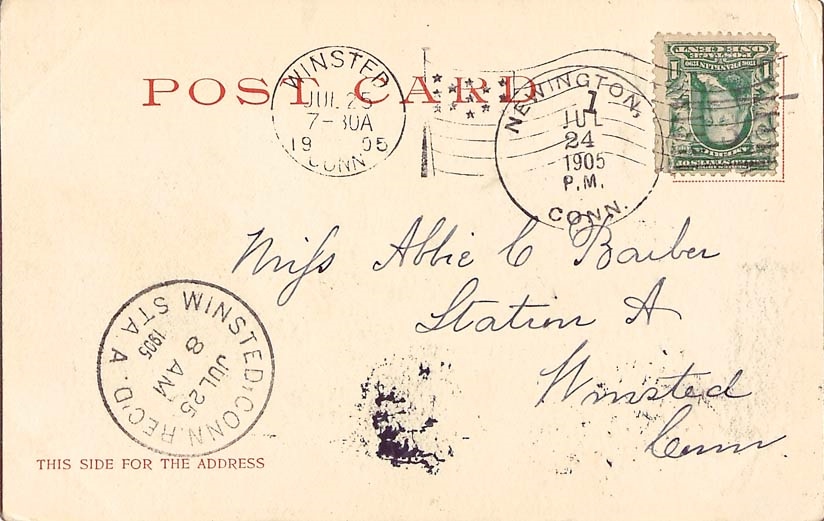 POST CARD
WINSTED
JUL 25
7-30A
19 05
CONN.
NEWINGTON,
1
JUL
24
1905
P.M.
CONN.
POSTAGE
ONE CENT
1 1
Miss Abbie C Barber
Station A
Winsted
Conn.
WINSTED, CONN. REC'D
STA A.
1905
8 AM
JUL 25
THIS SIDE FOR THE ADDRESS